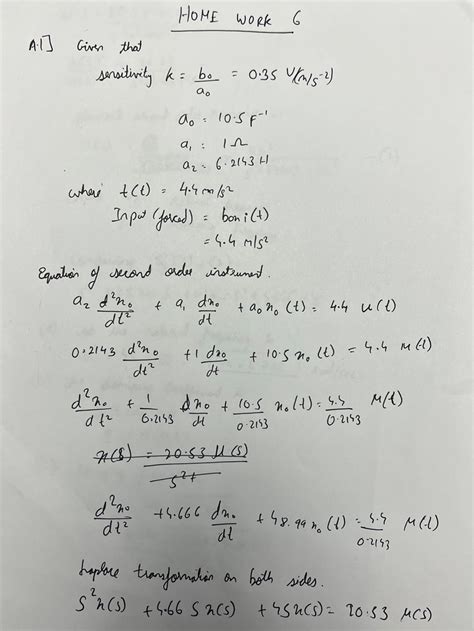 HOME WORK 6
A.1] Given that
sensitivity k = b₀/a₀ = 0.35 V/(m/s⁻²)
a₀ = 10.5 F⁻¹
a₁ = 1Ω
a₂ = 6.2143 H
where t(t) = 4.4 m/s²
Input (forced) = bon i(t)
= 4.4 m/s²
Equation of second order instrument.
a₂ d²x₀/dt² + a₁ dx₀/dt + a₀ x₀(t) = 4.4 u(t)
0.2143 d²x₀/dt² + 1 dx₀/dt + 10.5 x₀(t) = 4.4 u(t)
d²x₀/dt² + 1/0.2143 dx₀/dt + 10.5/0.2143 x₀(t) = 4.4/0.2143 u(t)
x(s) = 20.53 u(s)/s²+
d²x₀/dt² + 4.666 dx₀/dt + 48.99 x₀(t) = 4.4/0.2143 u(t)
Laplace transformation on both sides.
s²x(s) + 4.66 s x(s) + 49x(s) = 20.53 u(s)